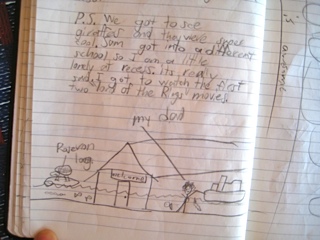 P.S. We got to see
giraffes and they were super
tall. Sam got into a different
school so I am a little
lonely at recess. Its really
I got to watch the first
two of the Rings movies.
my dad
welcome
is